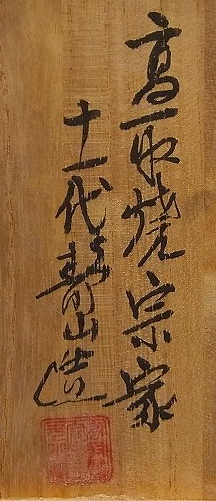 高取焼宗家
十一代静山造